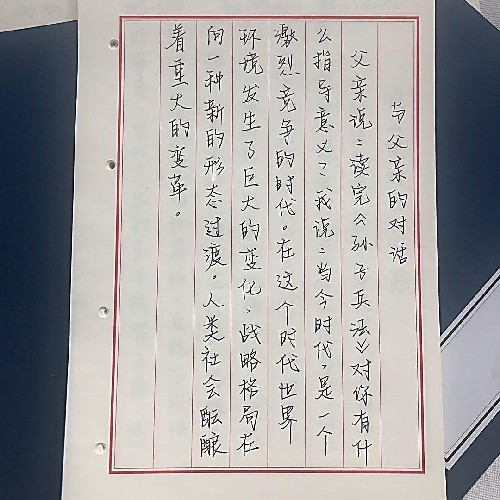 与父亲的对话
父亲说：读完《孙子兵法》对你有什
么指导意义？我说：当今时代，是一个
激烈竞争的时代。在这个时代世界
环境发生了巨大的变化，战略格局在
向一种新的形态过渡。人类社会酝酿
着重大的变革。